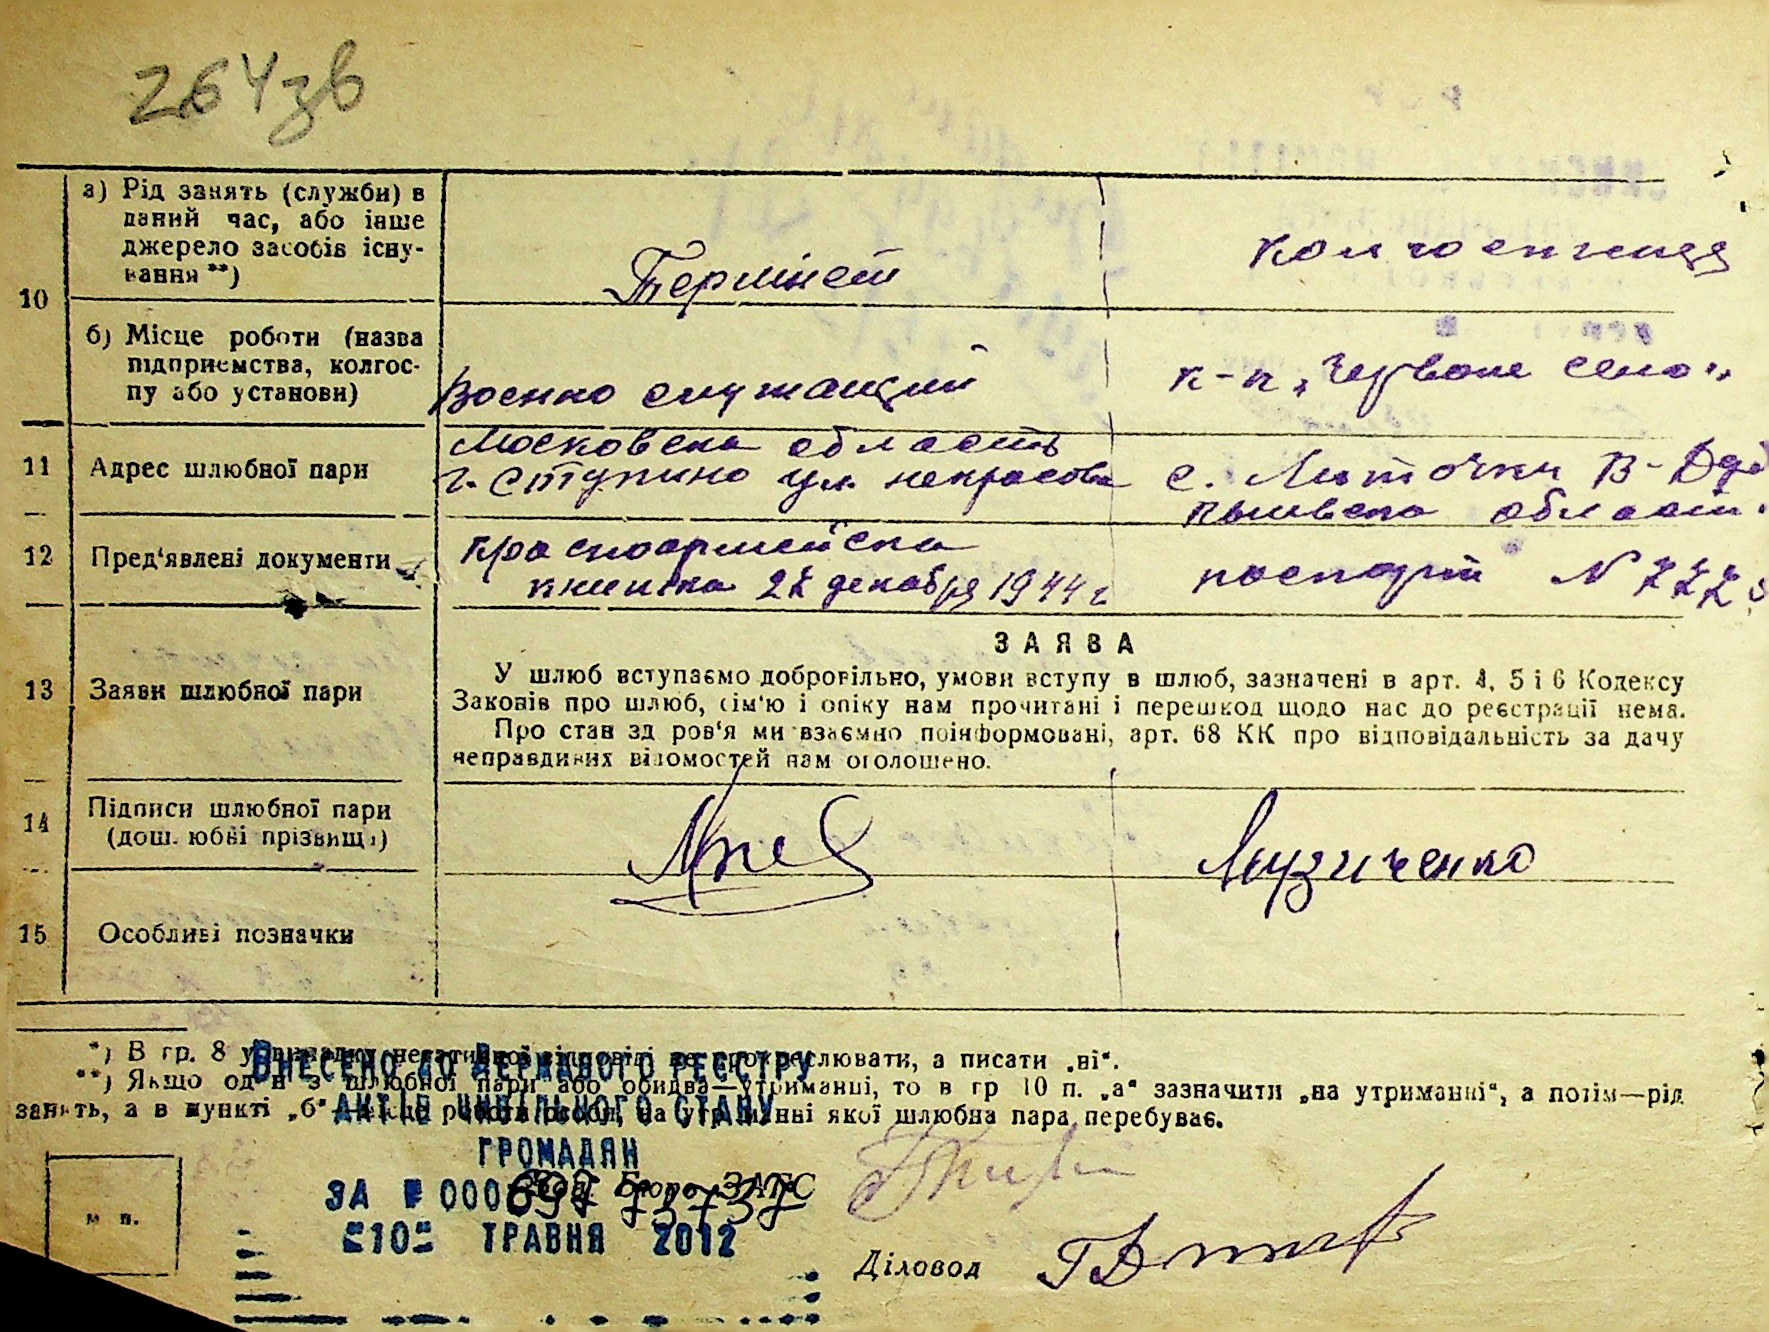 264зв
10
а) Рід занять (служби) в
даний час, або інше
джерело засобів існу-
вання **)
колгоспниця
б) Місце роботи (назва
підприємства, колгос-
пу або установи)
Военно служащий
к-п „Червоне село"
11
Адрес шлюбної пари
Московска область
г. Ступино ул. некрасова
с. Литочки В-Дуд
область
12
Пред'явлені документи
Красноармейска
книжка 22 декабря 1944 г
паспорт N
ЗАЯВА
13
Заяви шлюбної пари
У шлюб вступаємо добровільно, умови вступу в шлюб, зазначені в арт. 4, 5 і 6 Кодексу
Законів про шлюб, сім'ю і опіку нам прочитані і перешкод щодо нас до реєстрації нема.
Про стан здоров'я ми взаємно поінформовані, арт. 68 КК про відповідальність за дачу
неправдивих відомостей нам оголошено.
14
Підписи шлюбної пари
(дошлюбні прізвища)
Музиченко
15
Особливі позначки
*) В гр. 8 у випадку негативної відповіді не прокреслювати, а писати „ні".
**) Якщо один з шлюбної пари або обидва—утриманці, то в гр 10 п. „а" зазначити „на утриманні", а потім—рід
занять, а в пункті „б" — місце роботи особи, на утриманні якої шлюбна пара перебуває.
Внесено до Державного реєстру
актів цивільного стану
громадян
за № 000
"10" травня 2012
м п.
Зав. Бюро ЗАГС
Діловод